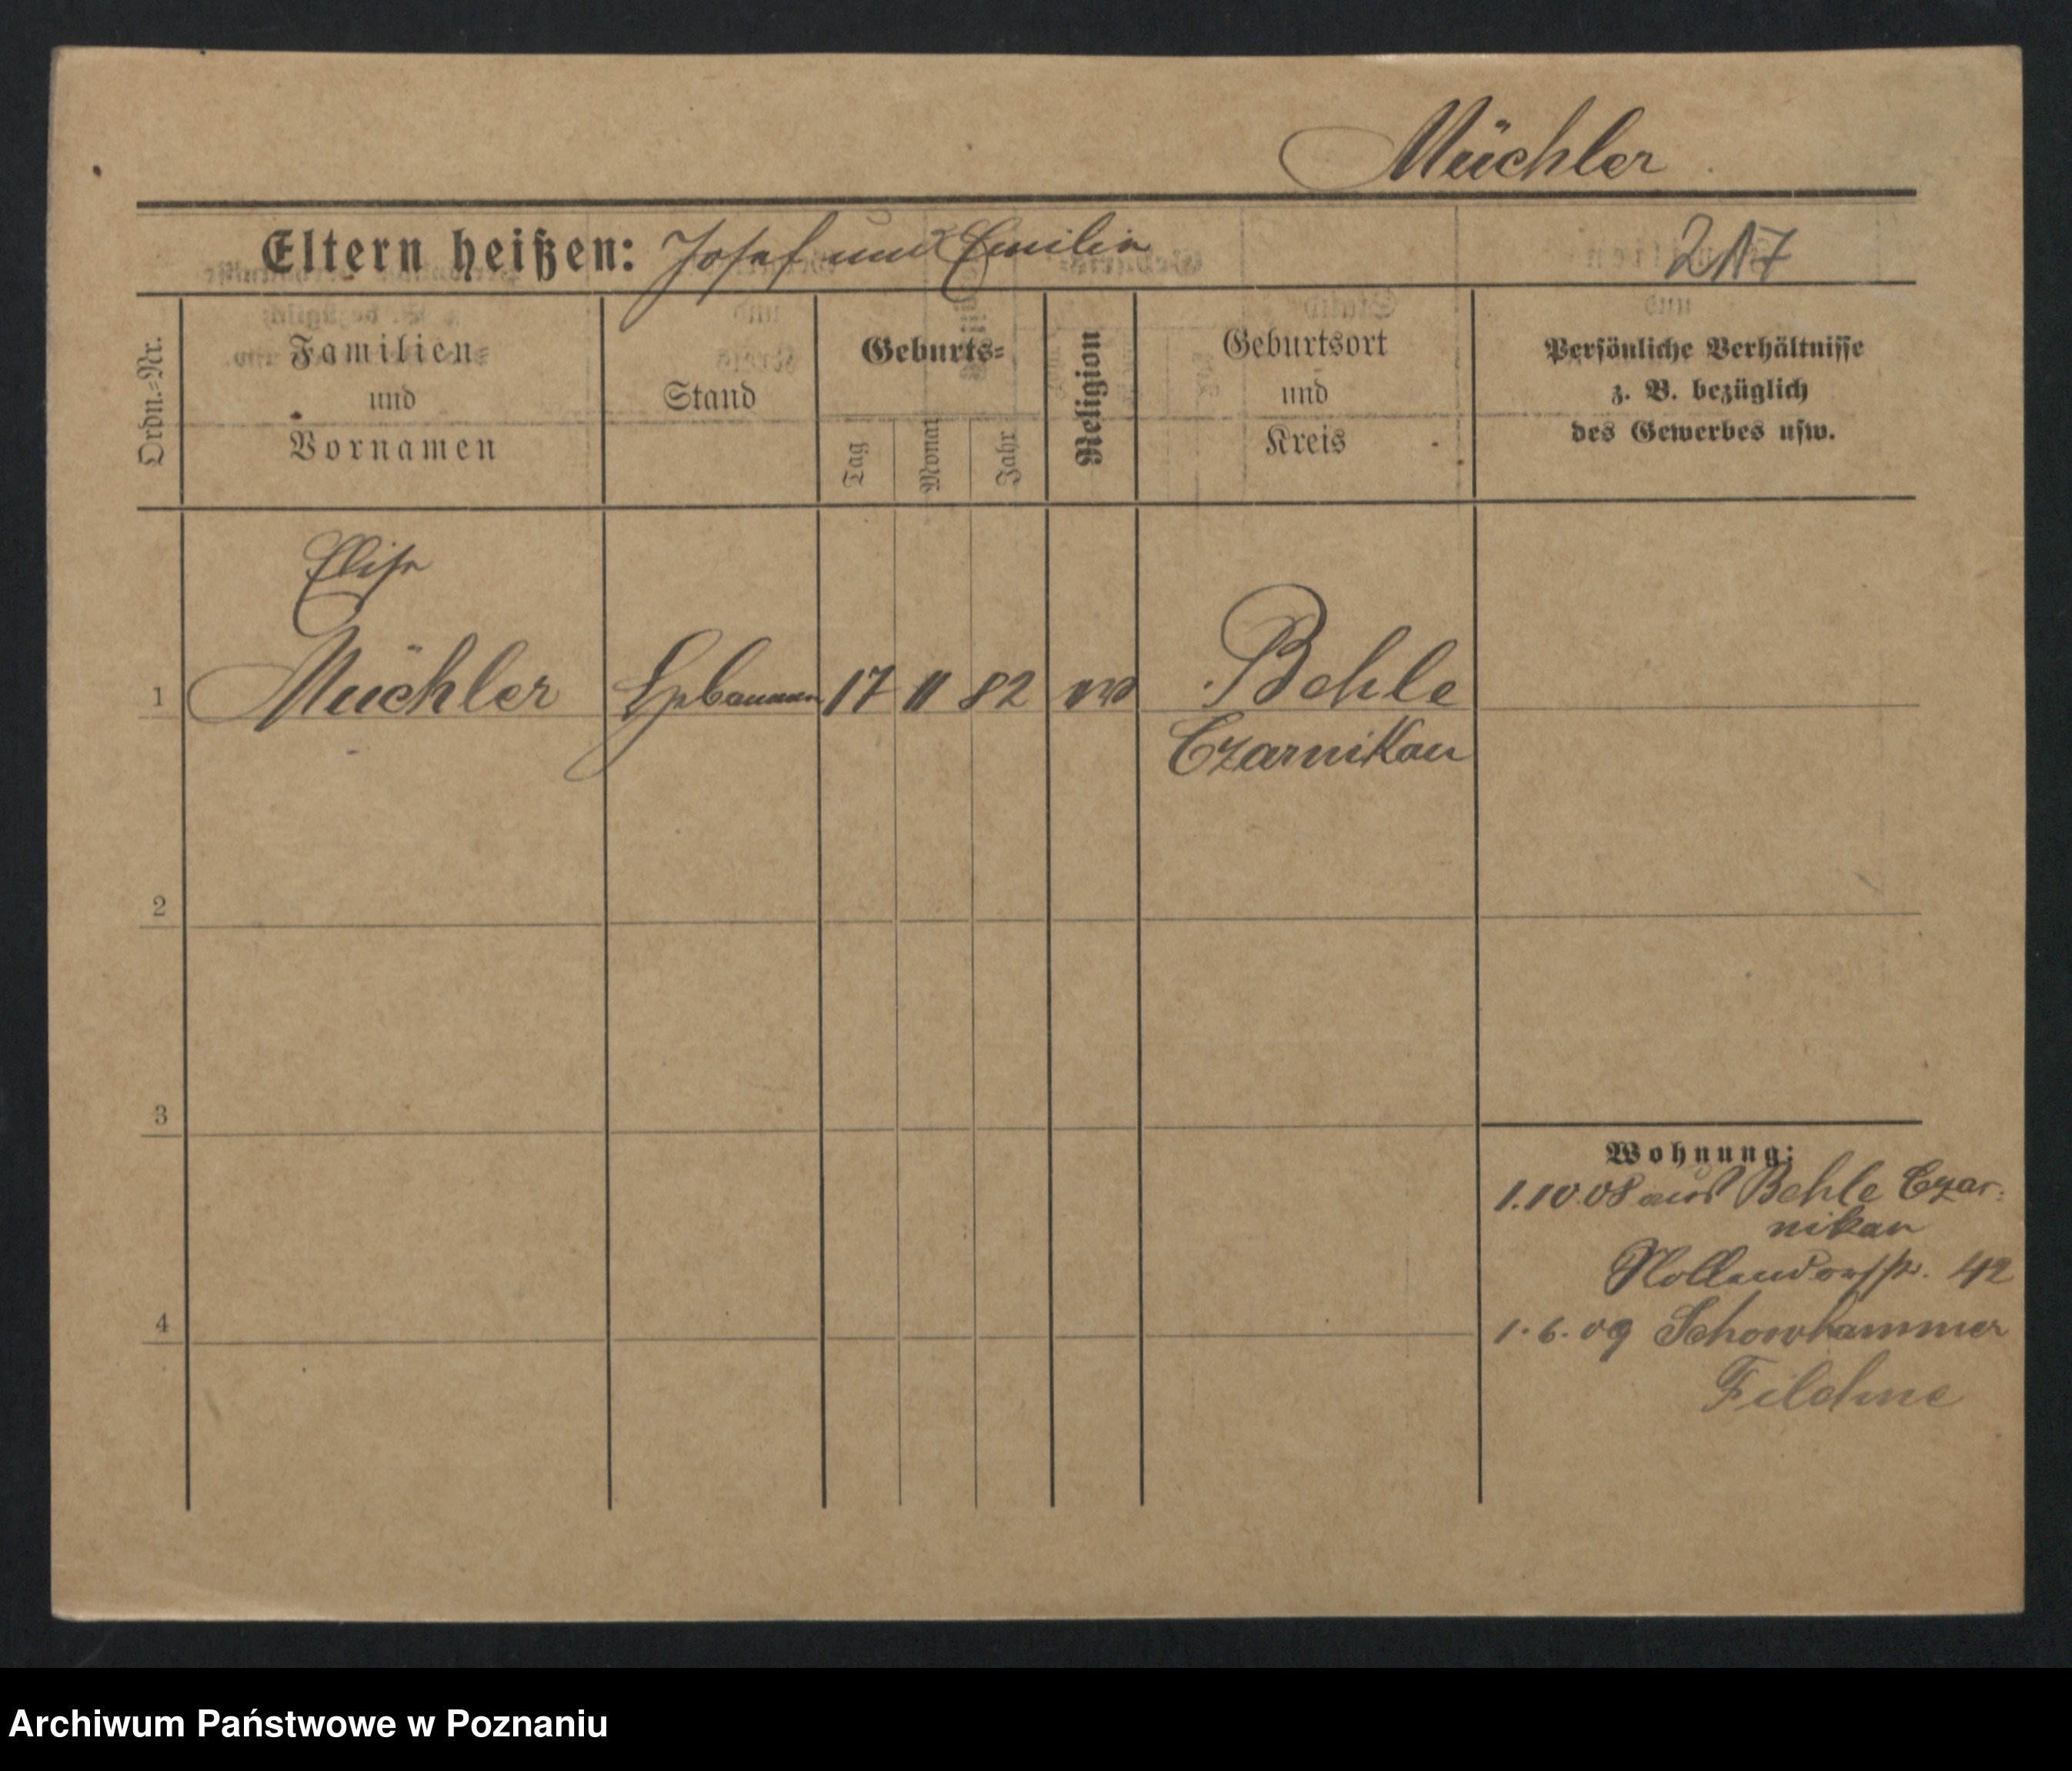 Müchler
Eltern heißen: Josef und Emilie
217
Ordn.=Nr.
Familien=
und
Vornamen
Stand
Geburts=
Tag
Monat
Jahr
Religion
Geburtsort
und
Kreis
Persönliche Verhältnisse
z. B. bezüglich
des Gewerbes usw.
Elise
1 Müchler 17 11 82 Behle
Czarnikau
2
3
4
Wohnung:
1.10.08 aus Behle Czar-
nikau
Nollendorfstr. 42
1.6.09
Filehne
Archiwum Państwowe w Poznaniu